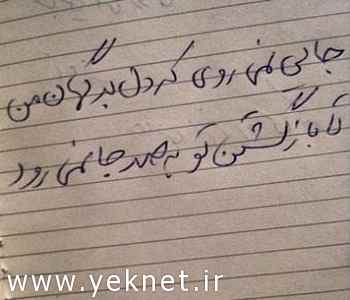 جائی نمی روی که دل بدگمان من
تا بازگشتن تو به صد جا نمی رود
www.yeknet.ir